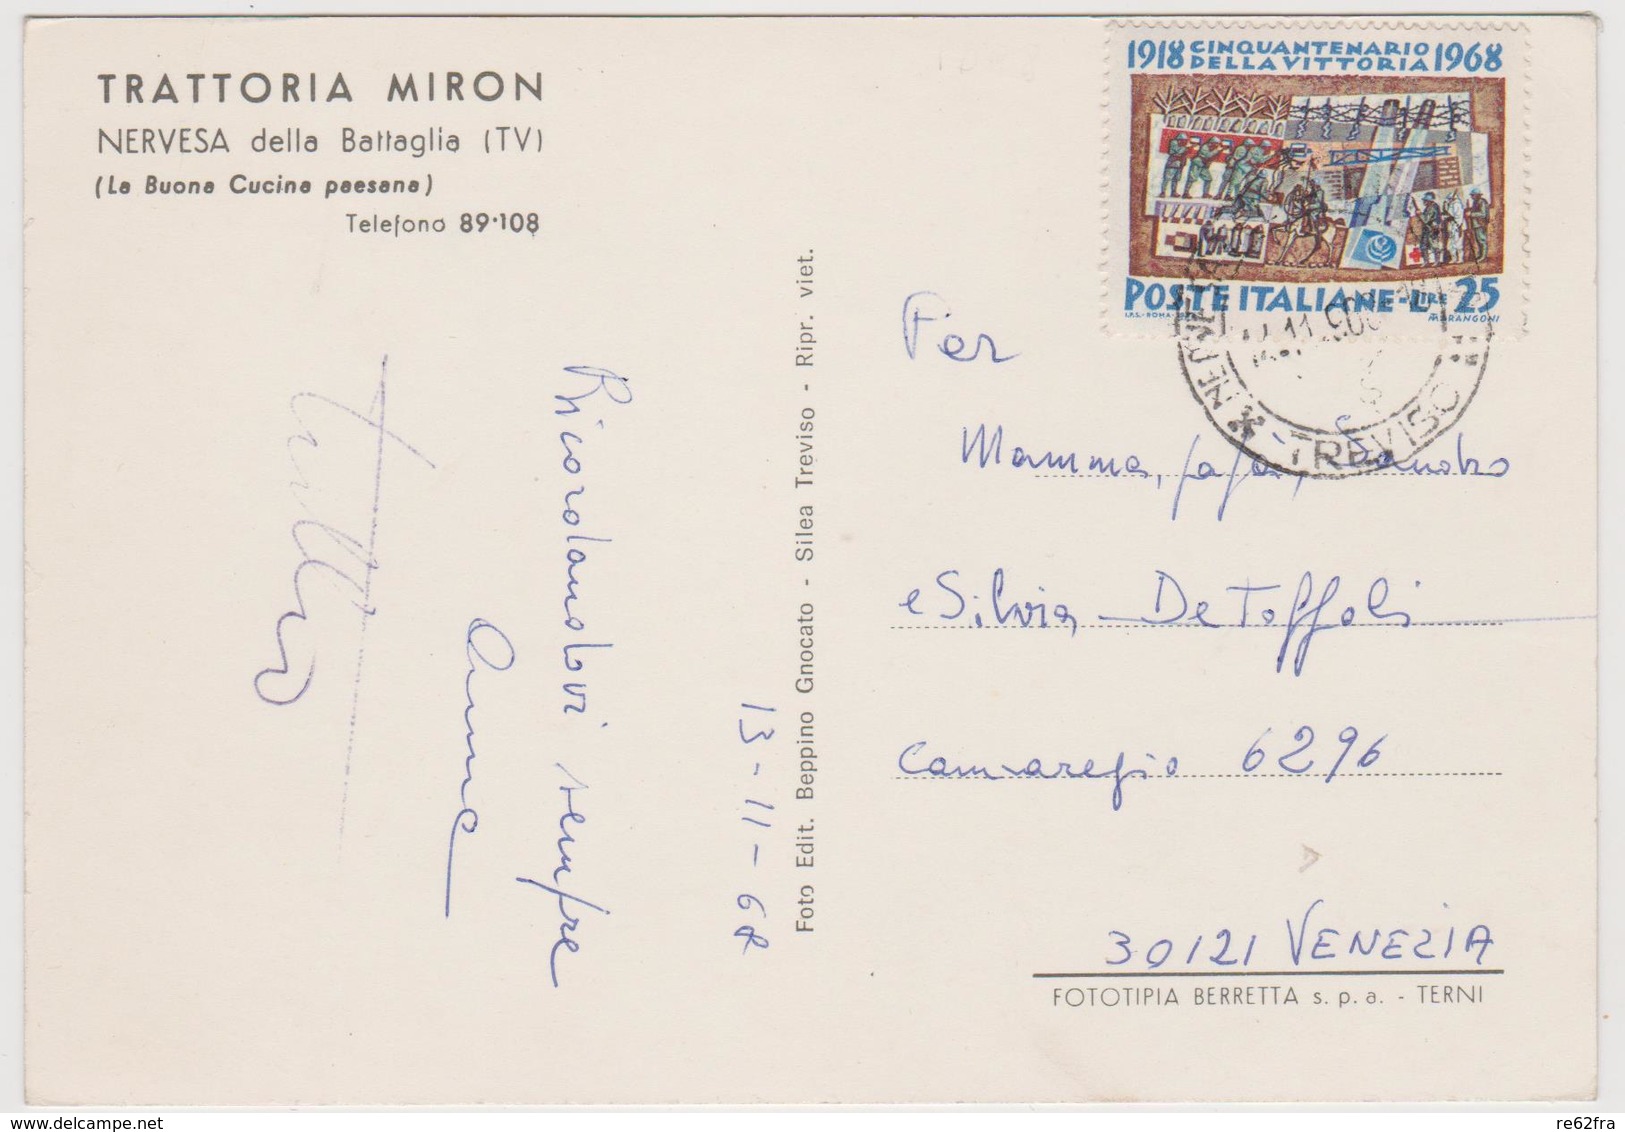 TRATTORIA MIRON
NERVESA della Battaglia (TV)
(La Buona Cucina paesana)
Telefono 89·108
Ricordandovi sempre
Anna
13-11-68
Foto Edit. Beppino Gnocato - Silea Treviso - Ripr. viet.
1918 CINQUANTENARIO DELLA VITTORIA 1968
POSTE ITALIANE - LIRE 25
I.P.S.-ROMA
MARANGONI
NERVESA
TREVISO
Per
Mamma, papà, Sandro
e Silvia De Toffoli
Cannaregio 6296
30121 VENEZIA
FOTOTIPIA BERRETTA s.p.a. - TERNI
re62fra
delcampe.net